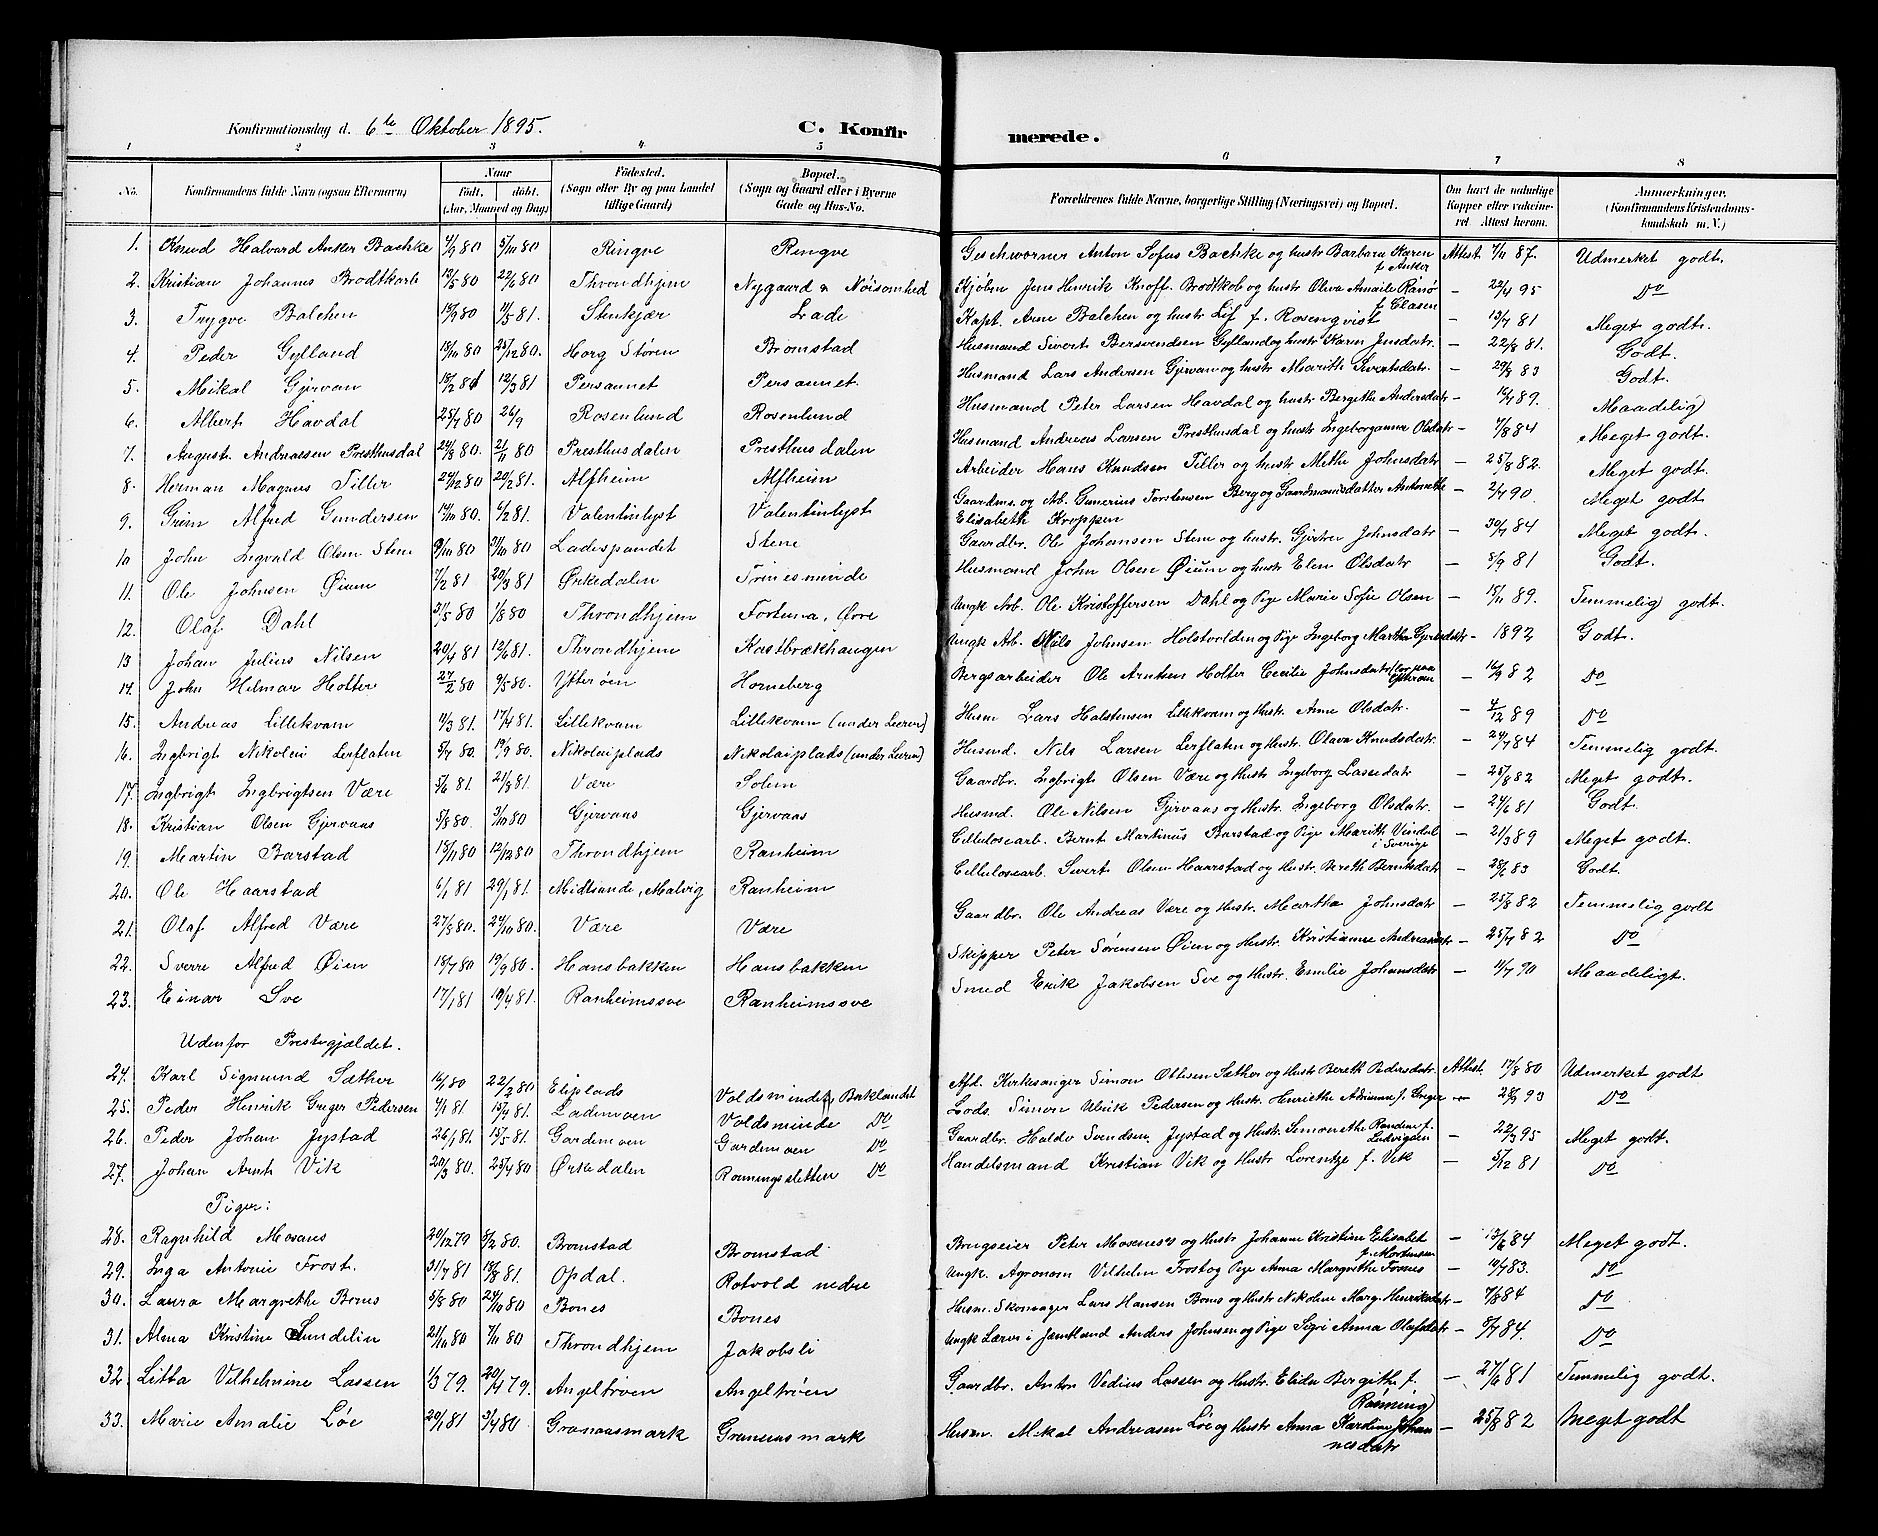 Konfirmationsdag d. 6te Oktober 1895. C. Konfirmerede.
1 2 3 4 5 6 7 8
No. Konfirmandens fulde Navn (ogsaa Efternavn) Naar født, døbt. (Aar, Maaned og Dag) Fødested. (Sogn eller By og paa Landet tillige Gaard) Bopæl. (Sogn og Gaard eller i Byerne Gade og Hus-No. Forældrenes fulde Navne, borgerlige Stilling (Næringsvei) og Bopæl. Om havt de naturlige Kopper eller vakcineret Attest herom. Anmerkninger. (Konfirmandens Kristendomskundskab m. V.)
1. Knud Halvard Anker Bachke 4/9 80 5/10 80 Ringve Ringve Geschworner Anton Sofus Bachke og hustr Barbara Karen f. Anker Attest 7/11 87. Udmerket godt.
2. Kristian Johannes Brodtkorb 13/5 80 22/6 80 Throndhjem Nygaard v Nöisomhed Kjöbm Jens Henrik Knoff Brodtkob og hustr Oliva Amalie Ranö f Clasen - 22/4 95 Do
3. Trygve Balchen 13/9 80 11/5 81. Stenkjær Lade Kapt. Arne Balchen og hustr Lif f. Rosenqvist - 13/7 81 Meget godt.
4. Peder Gylland 18/10 80 25/12 80. Horg Støren Bromstad Husmand Sivert Bersvendsen Gylland og hustr Karen Jensdatr. - 22/8 81. Godt.
5. Mikal Gjervan 18/2 81 12/3 81 Persaunet Persaunet. Husmand Lars Andersen Gjervan og hustr Marith Sivertsdatr. - 29/9 83 Godt.
6. Albert Havdal 25/7 80 26/9 Rosenlund Rosenlund Husmand Peter Larsen Havdal og hustr Bergethe Andersdatr - 16/7 89. Maadelig)
7. August Andreassen Presthusdal 24/8 80. 21/11 80 Presthusdalen Presthusdalen Husmand Andreas Larsen Presthusdal og hustr Ingeborganna Olsdatr - 7/8 84 Meget godt.
8. Herman Magnus Tiller 24/12 80 20/2 81. Alfheim Alfheim Arbeider Hans Knudsen Tiller og hustr Methe Johnsdatr - 25/8 82. Meget godt.
9. Grim Alfred Gundersen 14/10 80. 6/2 81. Valentinlyst Valentinlyst Gaardms. og Ab. Gunerius Torstensen Berg og Gaardmandsdatter Antonette Elisabeth Kroppen - 2/7 90. Meget godt.
10 John Ingvald Olsen Stene 9/10 80 31/10 80 Ladespandet Stene Gaardbr. Ole Johansen Stene og hustr. Gjertru Johnsdatr - 30/7 84 Meget godt.
11. Ole Johnsen Øium 7/2 81 20/3 81 Ørkedalen Trinesminde Husmand John Olsen Øium og hustr Elen Olsdatr - 5/9 81 Godt.
12. Olaf Dahl 31/5 80 1/8 80 Throndhjem Fortuna, Øvre Ungk Arb. Ole Kristoffersen Dahl og Pige Marie Sofie Olsen - 15/11 89. Temmelig) godt.
13 Johan Julius Nilsen 20/4 81 12/6 81. Throndhjem Kastbrækhaugen Ungk Ab. Nils Johnsen Holstvolden og Pige Ingeborg Martha - 1892 Godt.
14. John Hilmar Holter 27/2 80 9/5 80. Ytterøen Horneberg Bergsarbeider Ole Arntsen Holter Cecilie Johnsdatr - 16/9 82 Do
15. Andreas Lillekvam 11/3 81. 17/4 81. Lillekvam Lillekvam (under Leeren) Husm Lars Halstensen Lillekvam og Hustr. Anne Olsdatr. - 4/12 89 Do
16. Ingbrigt Nikolai Lerflaten 5/7 80. 19/9 80. Nikolaiplads Nikolaiplads (under Leeren) Husmd. Nils Larsen Lerflaten og Hustr. Olava Knudsdatr. - 24/7 84 Temmelig godt.
17. Ingbrigt Ingbrigtsen Være 5/6 81. 21/8 81. Være Solem Gaardbr. Ingbrigt Olsen Være og Hustr Ingeborg Lassedatr - 25/8 82 Meget godt.
18. Kristian Olsen Gjervaas 5/8 80. 3/10 80 Gjervaas Gjervaas Husmd. Ole Nilsen Gjervaas og Hustr. Ingeborg Olsdatr. - 24/6 81 Godt.
19. Martin Barstad 15/11 80 12/12 80 Throndhjem Ranheim Cellulosearb. Bernt Martinus Barstad og Pige Marith Vindal i Sverige - 21/3 89 Meget godt.
20. Ole Haarstad 6/1 81 29/1 81. Midtsande, Malvig Ranheim Cellulosearb. Sivert Olsen Haarstad og Hustr Bereth Berntsdatr - 28/6 83 Godt.
21. Olaf Alfred Være 27/8 80. 24/10 80. Være Være Gaardbr. Ole Andreas Være og Hustr. Martha Johnsdatr - 25/8 82 Temmelig godt
22. Sverre Alfred Øien 18/7 80 19/9 80. Hansbakken Hansbakken Skipper Peter Sørensen Øien og Hustr. Kristianne - 25/7 82 Do
23. Einar Sve 17/1 81 10/4 81. Ranheimssve Ranheimssve Smed Erik Jakobsen Sve og Hustr. Emilie Johansdatr - 11/7 90 Maadeligt.
Udenfor Prestegjældet.
24. Karl Sigmund Sæther 16/1 80 22/2 80 Eliplads Voldsminde, Baklandet Afd. Kirkesanger Simon Ottesen Sæther og Hustr Bereth Pedersdatr. Attest. 17/8 80 Udmerket godt
25. Peder Henrik Greger Pedersen 4/1 81. 13/4 81. Lademoen Voldsminde Do Lods. Simon Ulrik Pedersen og Hustr. Henriette Adrianne f. Greger - 28/9 93 Do
26. Peder Johan Jystad 26/1 81. 15/5 81. Gardemoen Gardemoen Do Gaardbr. Haldo Svendsen Jystad og Hustr. Simonethe Randine f. Ludvigsen - 22/3 95 Meget godt.
27. Johan Arnt Vik 20/3 80. 25/4 80 Ørkedalen Ronningssletten Do Handelsmand Kristian Vik og Hustr Lorentze f. Vik - 5/12 81 Do
Piger:
28. Ragnhild Mosæus 20/12 79 8/2 80. Bromstad Bromstad Brugseier Peter og Hustr Johanne Kristine Elisabet f. Mortensen - 13/6 84 Meget godt.
29. Inga Antonie Frost. 31/7 81 18/8 81. Opdal. Rotvold nedre Ungk. Agronom Vilhelm Frost og Pige Anna Margrethe - 10/7 83. Do
30. Laura Margrethe Bones 5/8 80 24/10 80 Bones Bones Husm. Skomager Lars Hansen Bones og Hustr Nikoline Marg. Henriksdatr - 7/8 84 Do
31. Alma Kristine Sundelin 21/10 80 7/11 80 Throndhjem Jakobsli Ungk Lærer i Jæmtland Anders Johnsen og Pige Sigri Anna Olafsdatr - 5/7 84. Do
32. Litta Vilhelmine Lassen 1/3 79. 20/4 79. Angeltrøen Angeltrøen Gaardbr. Anton Vedius Lassen og Hustr. Elida Bergithe f. Rønning) - 27/6 81 Temmelig godt.
33. Marie Amalie Løe 20/1 81 3/4 80 Granaasmark Granaasmark Husm. Mikal Andreasen Løe og Hustr Anna Kardine Johannesdatr - 25/8 82 Meget godt